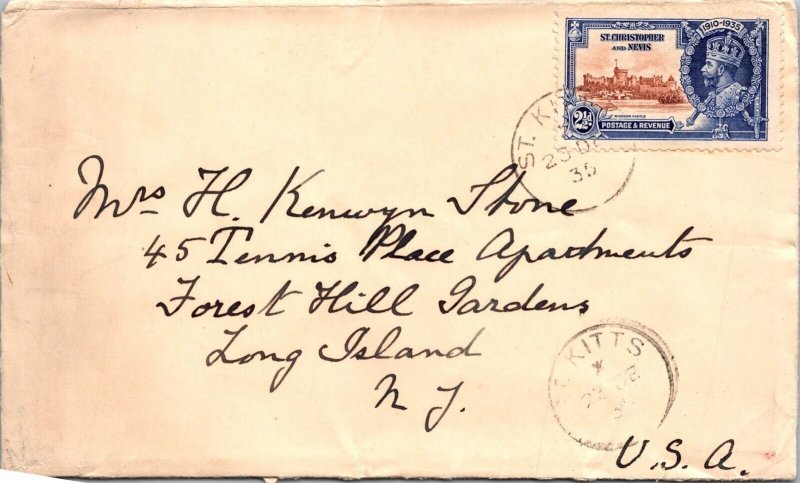 1910-1935
ST. CHRISTOPHER
AND NEVIS
WINDSOR CASTLE
2½d
POSTAGE & REVENUE
ST. KI
23 DE
35
Mrs H. Kenwyn Stone
45 Tennis Place Apartments
Forest Hill Gardens
Long Island
N J.
U.S.A.
ST. KITTS
DE